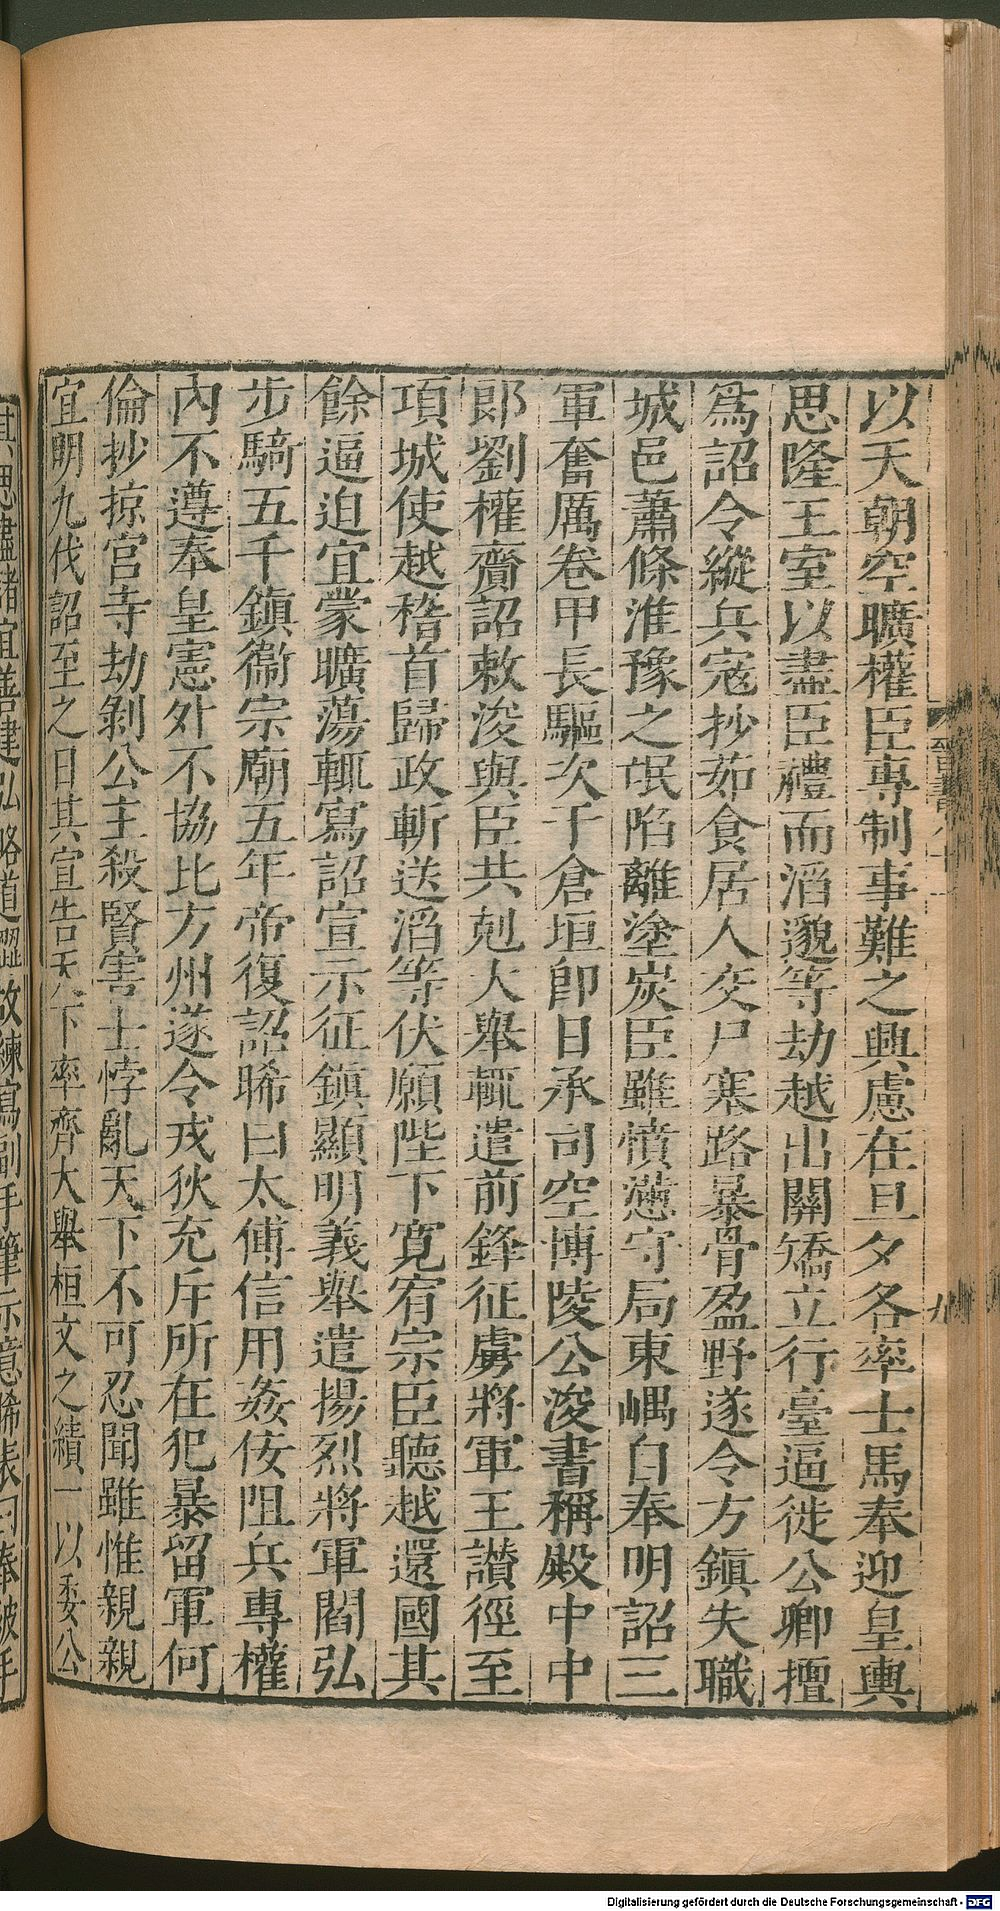 以天朝空曠權臣專制事難之興慮在旦夕各率士馬奉迎皇輿
思隆王室以盡臣禮而滔邈等劫越出關矯立行臺逼徙公卿擅
爲詔令縱兵寇抄茹食居人交尸塞路暴骨盈野遂令方鎮失職
城邑蕭條淮豫之氓陷離塗炭臣雖憤懣守局東嵎自奉明詔三
軍奮厲卷甲長驅次于倉垣卽日承司空博陵公浚書稱殿中中
郎劉權齎詔敕浚與臣共剋大舉輒遣前鋒征虜將軍王讃徑至
項城使越稽首歸政斬送滔等伏願陛下寬宥宗臣聽越還國其
餘逼迫宜蒙曠蕩輒寫詔宣示征鎮顯明義舉遣揚烈將軍閻弘
步騎五千鎮衞宗廟五年帝復詔晞曰太傅信用姦佞阻兵專權
內不遵奉皇憲外不協比方州遂令戎狄充斥所在犯暴留軍何
倫抄掠宮寺劫剝公主殺賢害士悖亂天下不可忍聞雖惟親親
宜明九伐詔至之日其宣告天下率齊大舉桓文之績一以委公
其思盡諸宜善建弘略道澀故練寫副手筆示意晞表曰奉被手
晉書
九
Digitalisierung gefördert durch die Deutsche Forschungsgemeinschaft - DFG